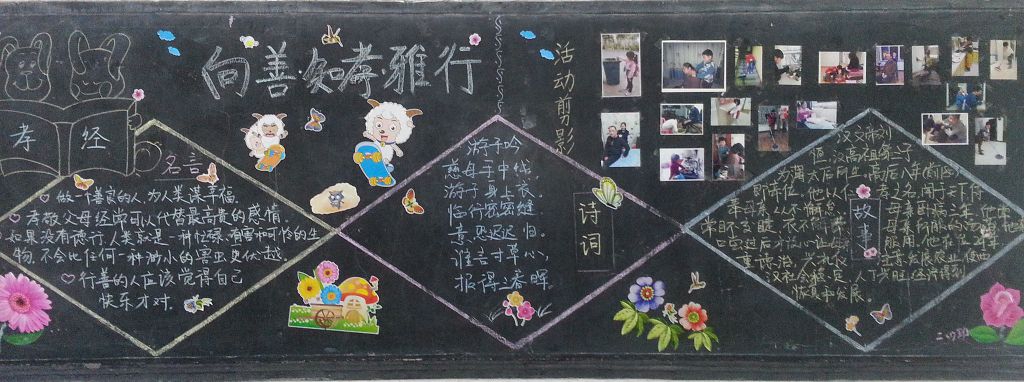 向善知孝雅行
孝经
名言
做一个善良的人,为人类谋幸福。
孝敬父母经常可以代替最高贵的感情。
如果没有德行,人类就是一种忙碌、有害和可怜的生
物,不会比任何一种渺小的害虫更优越。
行善的人应该觉得自己
快乐才对。
游子吟
慈母手中线,
游子身上衣。
临行密密缝,
意恐迟迟归。
谁言寸草心,
报得三春晖。
诗词
活动剪影
故事
汉文帝刘
恒,汉高祖第三子,
为薄太后所生。高后八年
即帝位。他以仁孝之名,闻于天下,侍
奉母亲从不懈怠。母亲卧病三年,他常常
目不交睫,衣不解带;母亲所服的汤药,他亲
口尝过后才放心让母亲服用。他在位
重德治,兴礼仪,注意发展农业,使西
汉社会稳定,人丁兴旺,经济得到
恢复和发展。